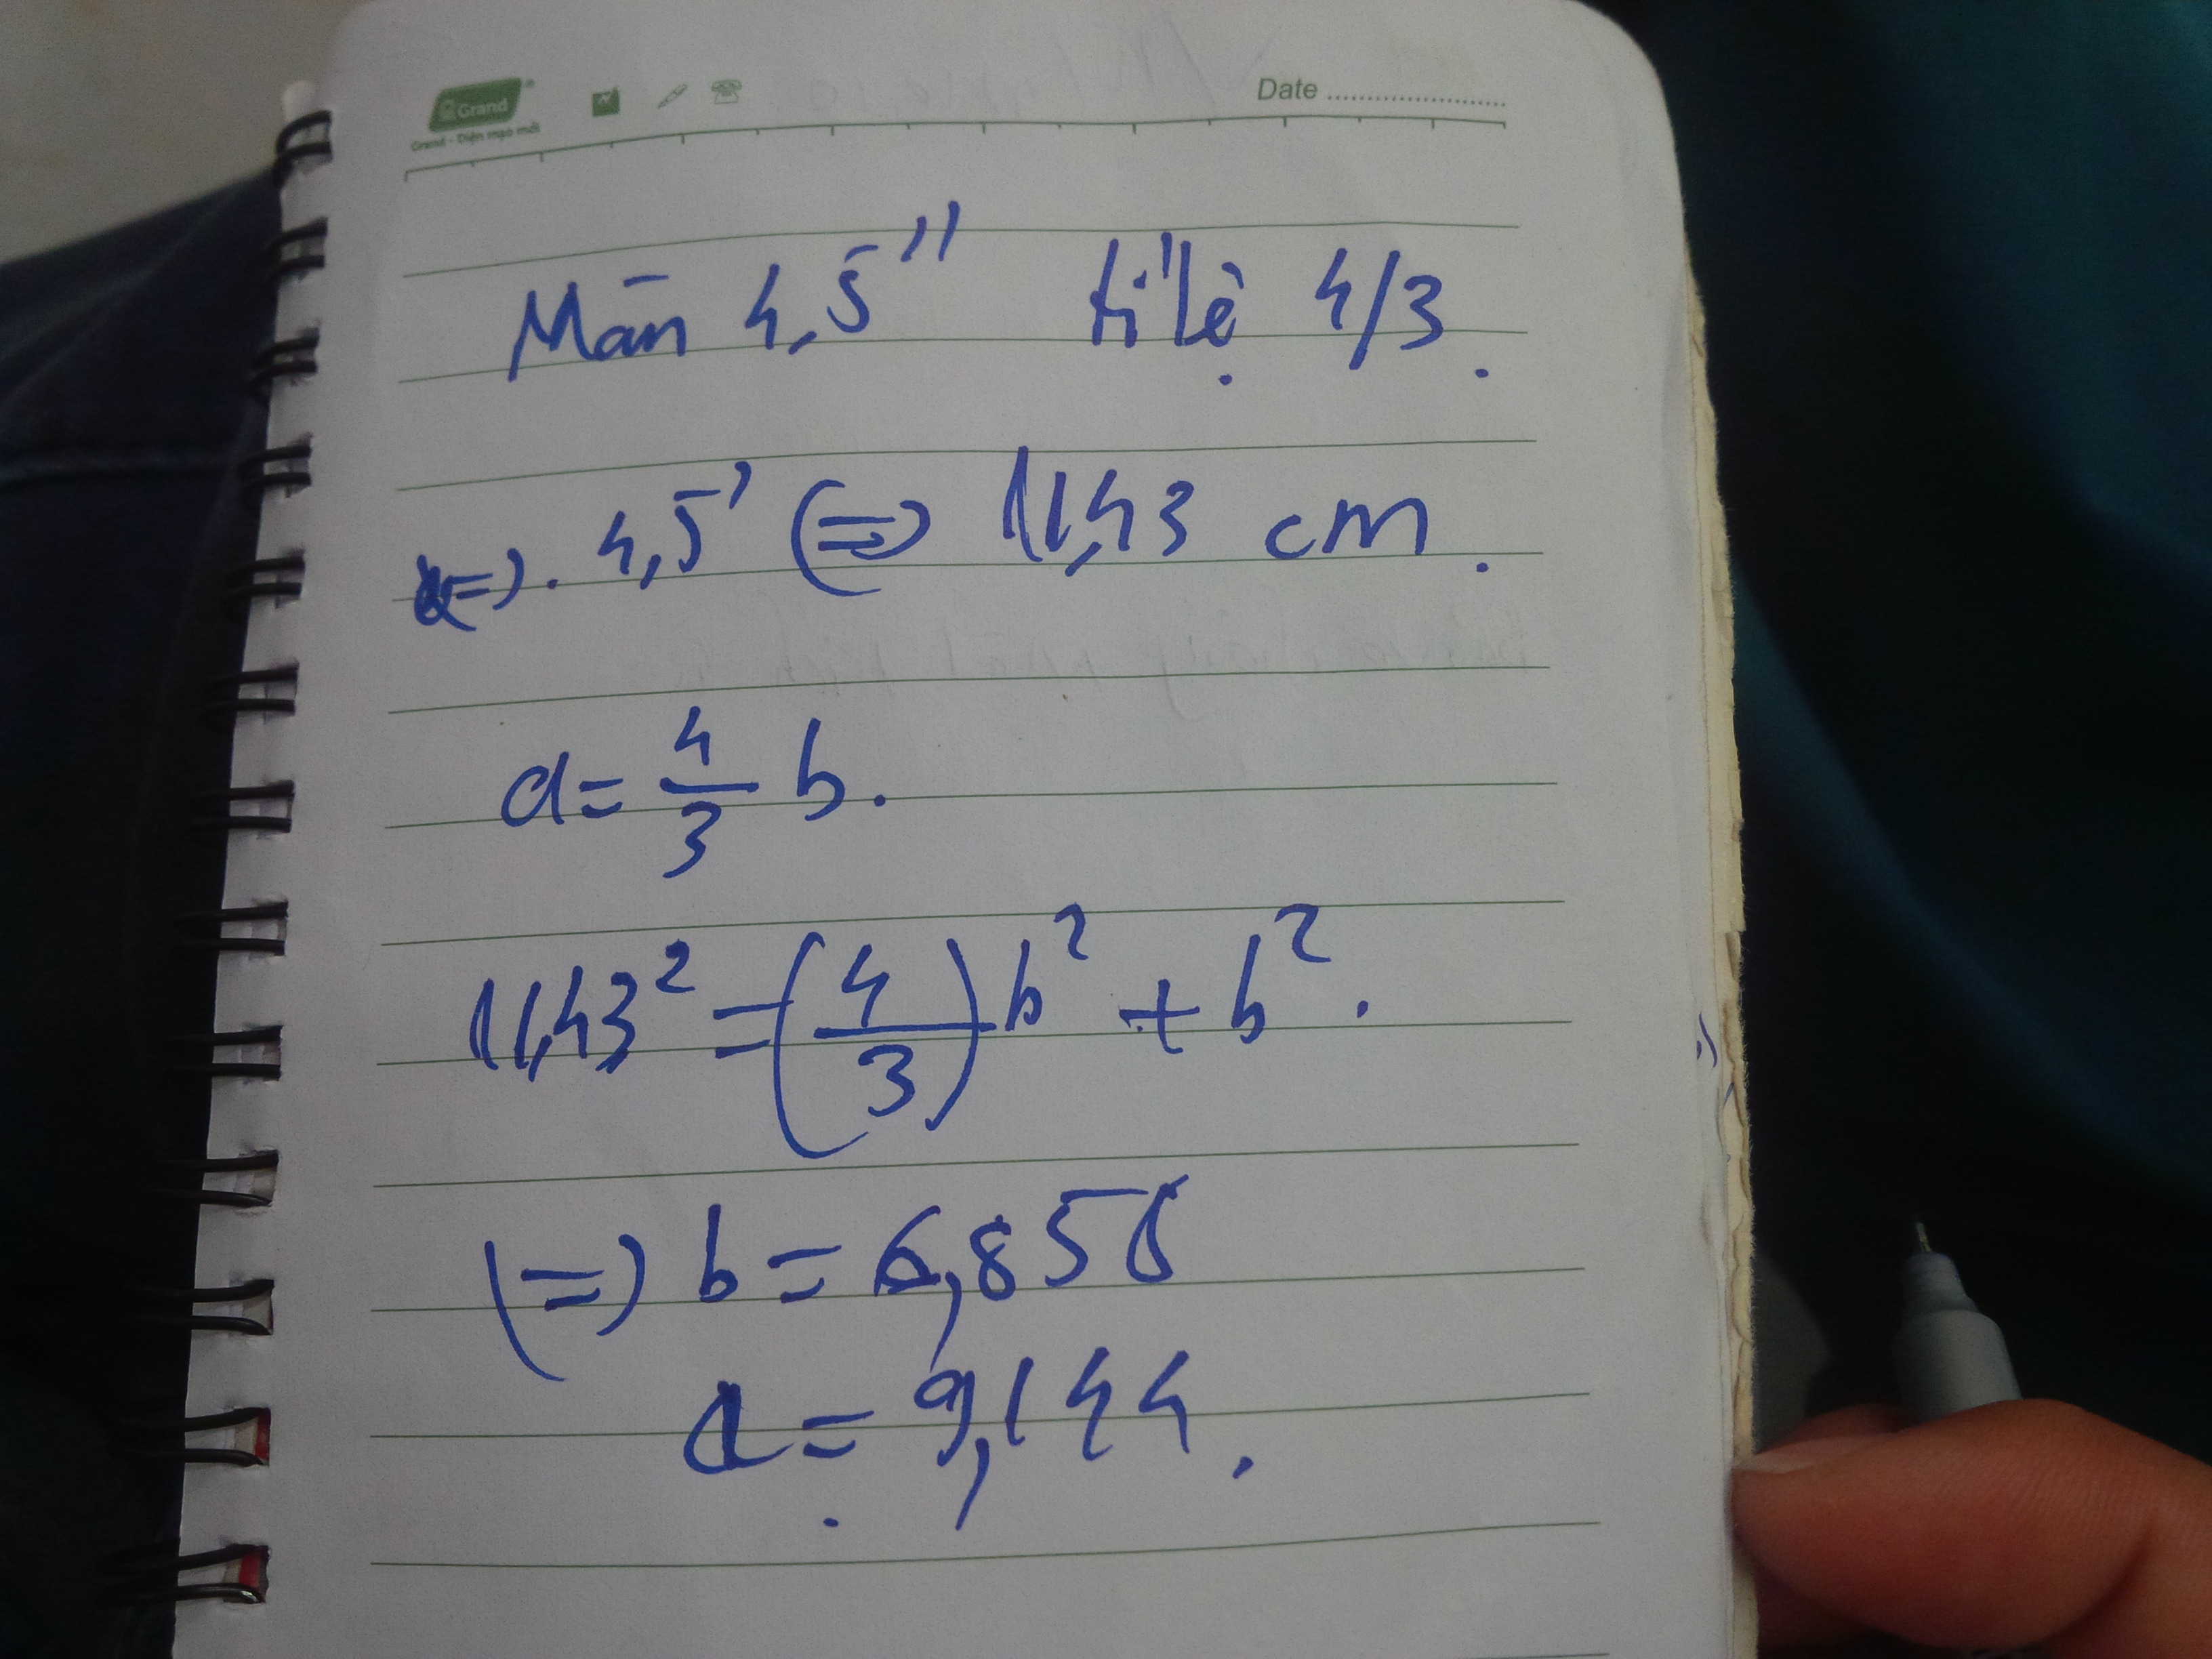 Grand
Grand - Diện mạo mới
Date
Màn 4,5" tỉ lệ 4/3.
(=). 4,5' (=) 11,43 cm.
a = 4/3 b.
11,43² = (4/3) b² + b².
(=) b = 6,858
a = 9,144.